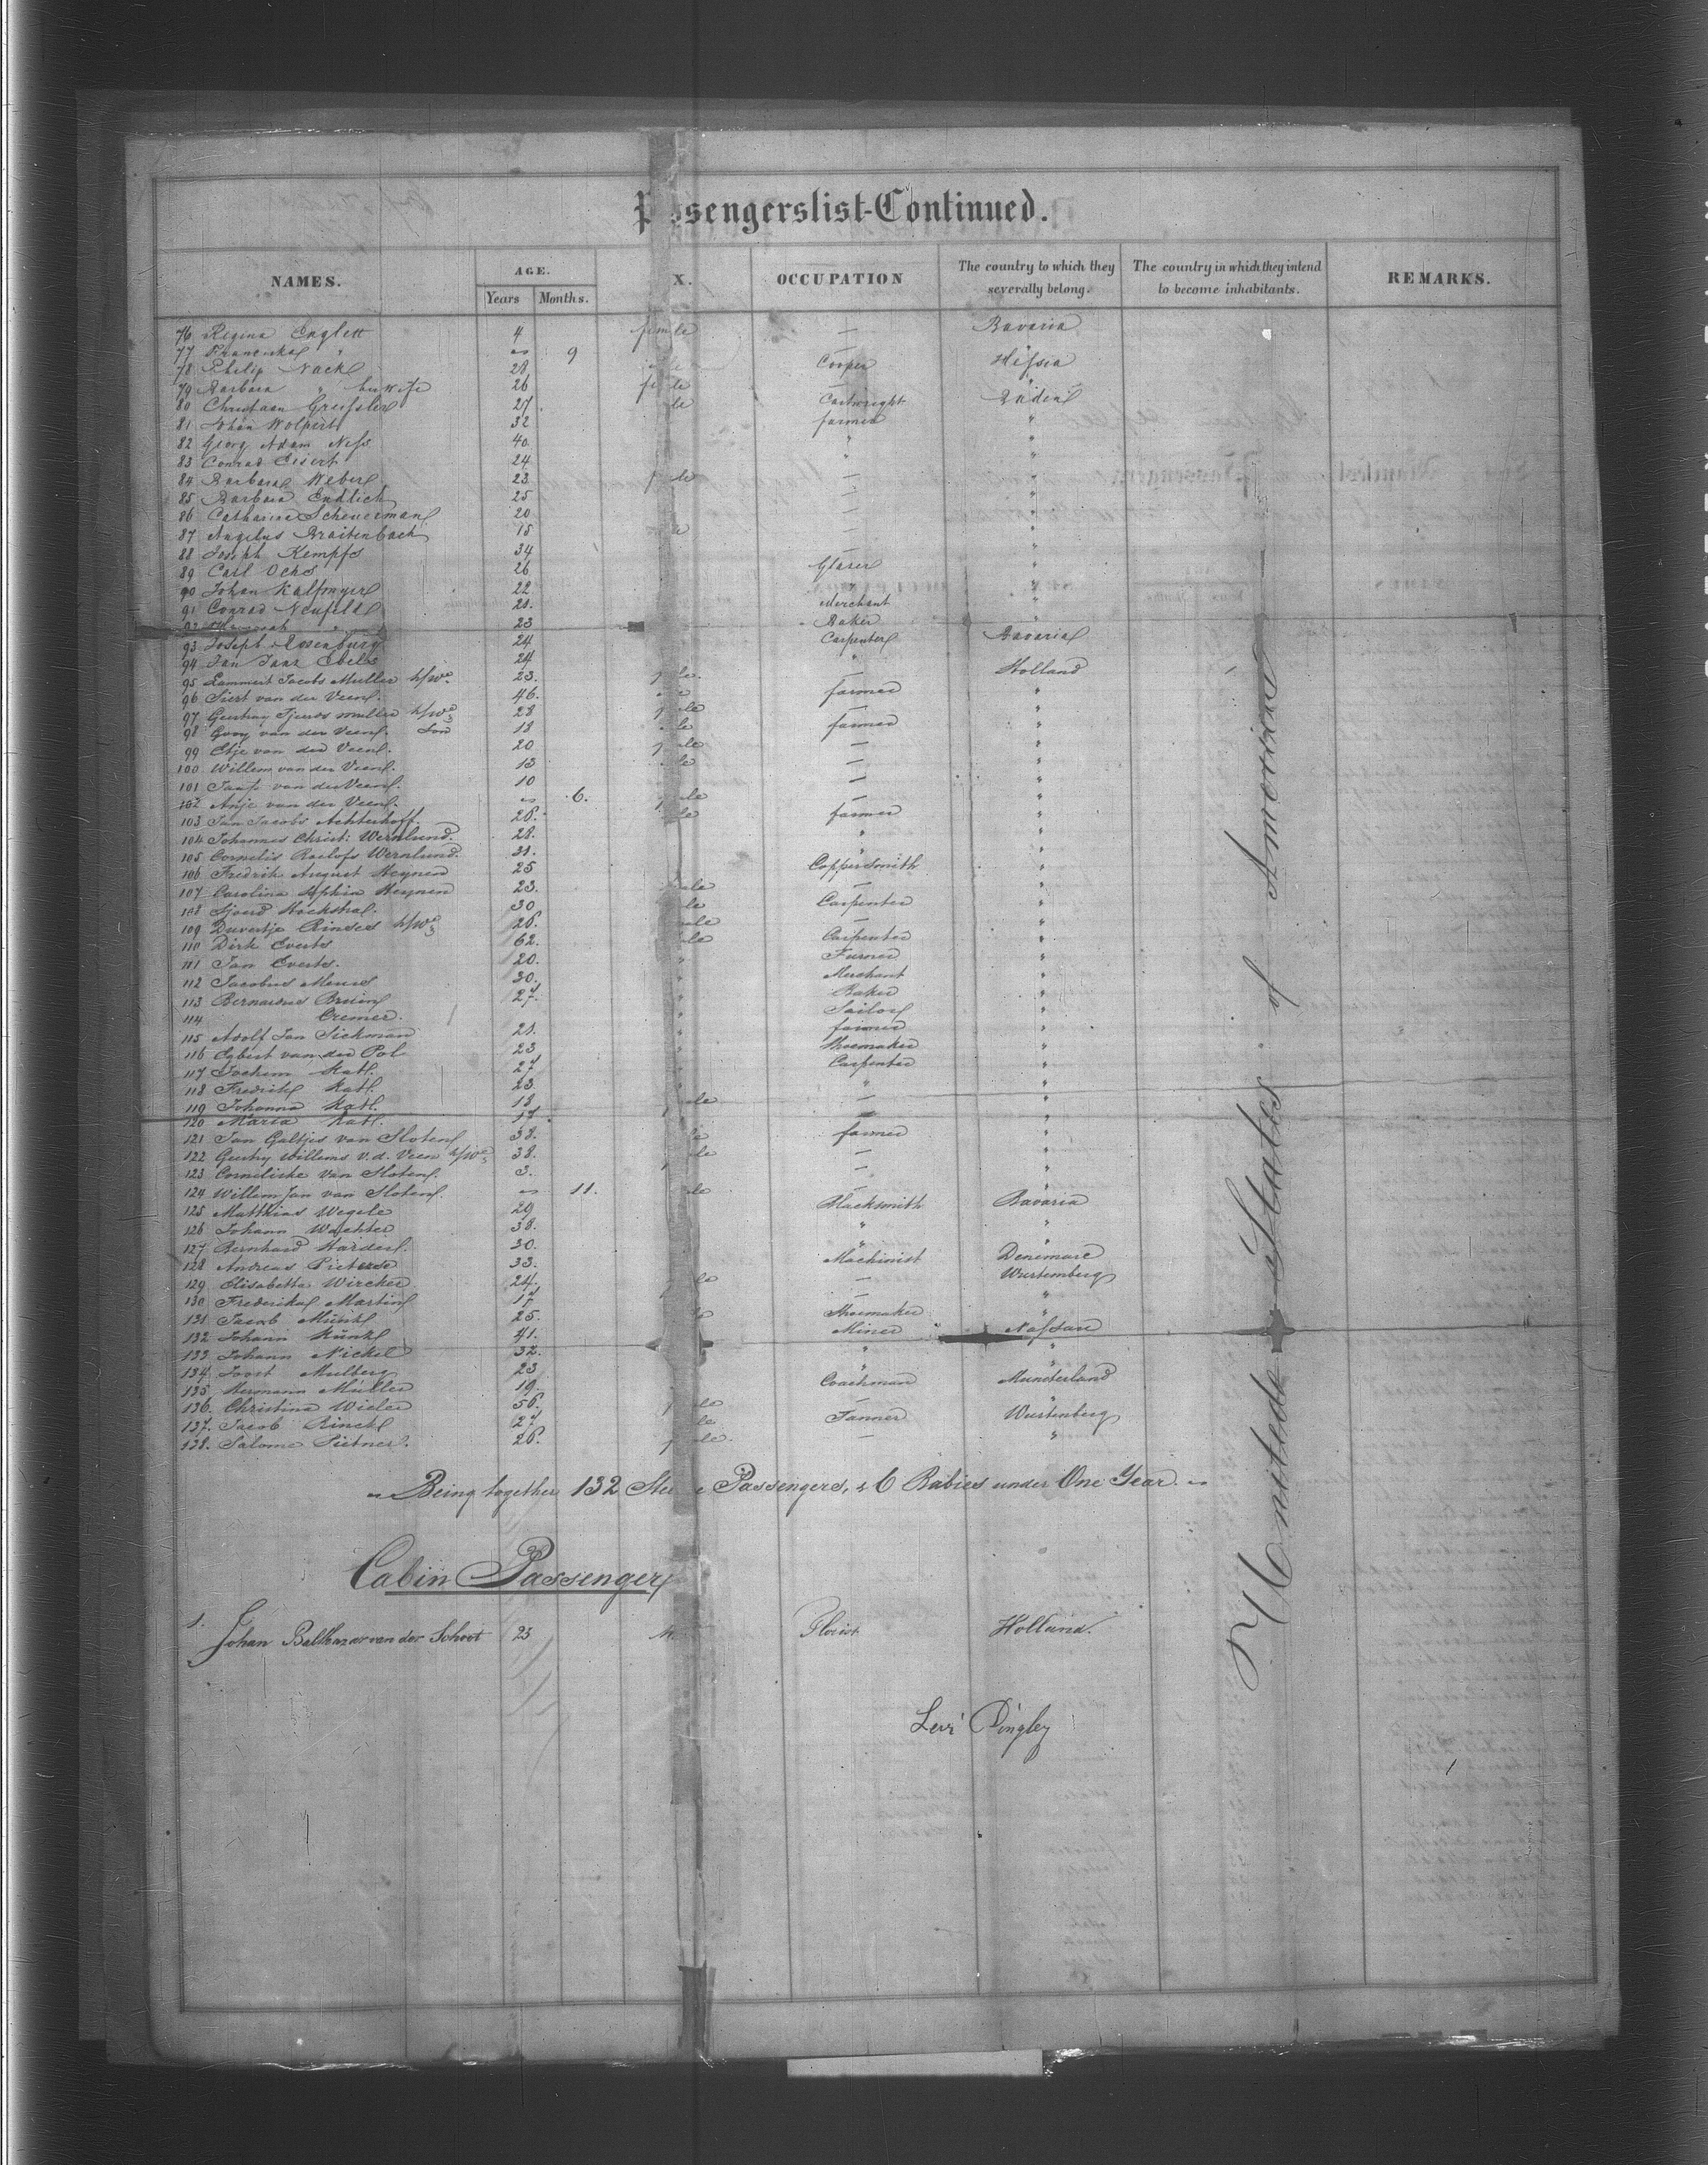 Passengerslist-Continued.
NAMES. AGE. X. OCCUPATION The country to which they severally belong. The country in which they intend to become inhabitants. REMARKS.
Years Months.
76 Regina Englett 4 female — Bavaria
77 Franciska " 9 —
78 Philip Nack 28 Cooper Hessia
79 Barbara " his wife 26 — "
80 Christiaan 27. Cartwright Baden
81 Johan Wolpert 32 farmer "
82 Georg Adam Ness 40 " "
83 Conrad Eisert 24 " "
84 Barbara Weber 23 — "
85 Barbara Endlich 25 — "
86 Catharina Scheuerman 20 — "
87 Angelus Braitenbach 15 — "
88 Joseph Kempfs 34 — "
89 Carl Ochs 26 Glaser "
90 Johan Kalfmyer 22 " "
91 Conrad Neufeld 21. Merchant "
92 " 23 Baker
93 Joseph Rosenburg 24 Carpenter Bavaria
94 Jan Jans Ebels 24 " Holland
95 Lammert Jacobs Muller h/we 23. — "
96 Siert van der Veen. 46. farmer "
97 Geertruy Tjeerds Muller h/we 28 — "
98 van der Veen. Son 18 farmer "
99 Etje van der Veen. 20 — "
100 Willem van der Veen. 13 — "
101 Jaap van der Veen. 10 — "
102 Anje van der Veen. 6. — "
103 Jan Jacobs Achterhoff. 26. farmer "
104 Johannes Christ: Wernlund. 28. " "
105 Cornelis Roelofs Wernlund. 31. " "
106 Fredrik August Heynen 25 Coppersmith "
107 Carolina Sophia Heynen 23. — "
108 Sjoerd Hoekstra. 30 Carpenter "
109 Duvertje Rinses h/we 26. — "
110 Dirk Everts 62. Carpenter "
111 Jan Everts. 20. Turner "
112 Jacobus Meurs 30. Merchant "
113 Bernardus Bruin 27. Baker "
114 Cremer. Sailor "
115 Adolf Jan Siekman 21. farmer "
116 Egbert van der Pol 23 Shoemaker "
117 Jochem Katt. 27 Carpenter "
118 Fredrik Katt. 23 " "
119 Johanna Katt. 18. — "
120 Maria Katt. 17. — "
121 Jan Galtjes van Sloten 38. farmer "
122 Geertry Willems v.d. Veen h/we 38. — "
123 Corneliske van Sloten. 3. — "
124 Willem Jan van Sloten. 11. — "
125 Matthias Wegele 29 Blacksmith Bavaria
126 Johann Wachter 38. " "
127 Bernhard Harder. 30. " "
128 Andreas Pieterse 33. Machinist Denemarc
129 Elisabetha Wircker 24. — Wurtemberg
130 Frederika Martin 17 — "
131 Jacob Münk 25. Shoemaker "
132 Johann Künk 41. Miner Nassau
133 Johann Nickel 32. " "
134. Joost Mulberg 23 " "
135 Hermann Müller 19. Coachman Munderland
136. Christina Wieler 56. — "
137. Jacob Binck 27. Tanner Wurtenberg
138. Salome Pütner. 26. — "
United States of America
Being together 132 Passengers, & 6 Babies under One Year.
Cabin Passenger
1. Johan Balthazar van der Schoot 23 Florist Holland.
Levi Dingley